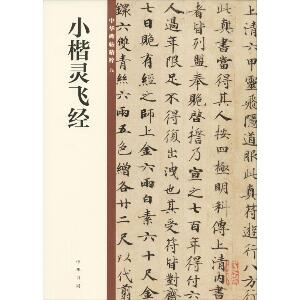 中华碑帖精粹
小楷灵飞经
中华书局
上清六甲灵飛隱道服此真符遊行八方行
此真書當得其人按四極明科傳上清内書
者皆列盟奉贶啓誓乃宣之七百年得付六
十日贶有經之師上金六兩白素六十尺金
錄六雙青絲六兩五色繒各廿二尺以代翦